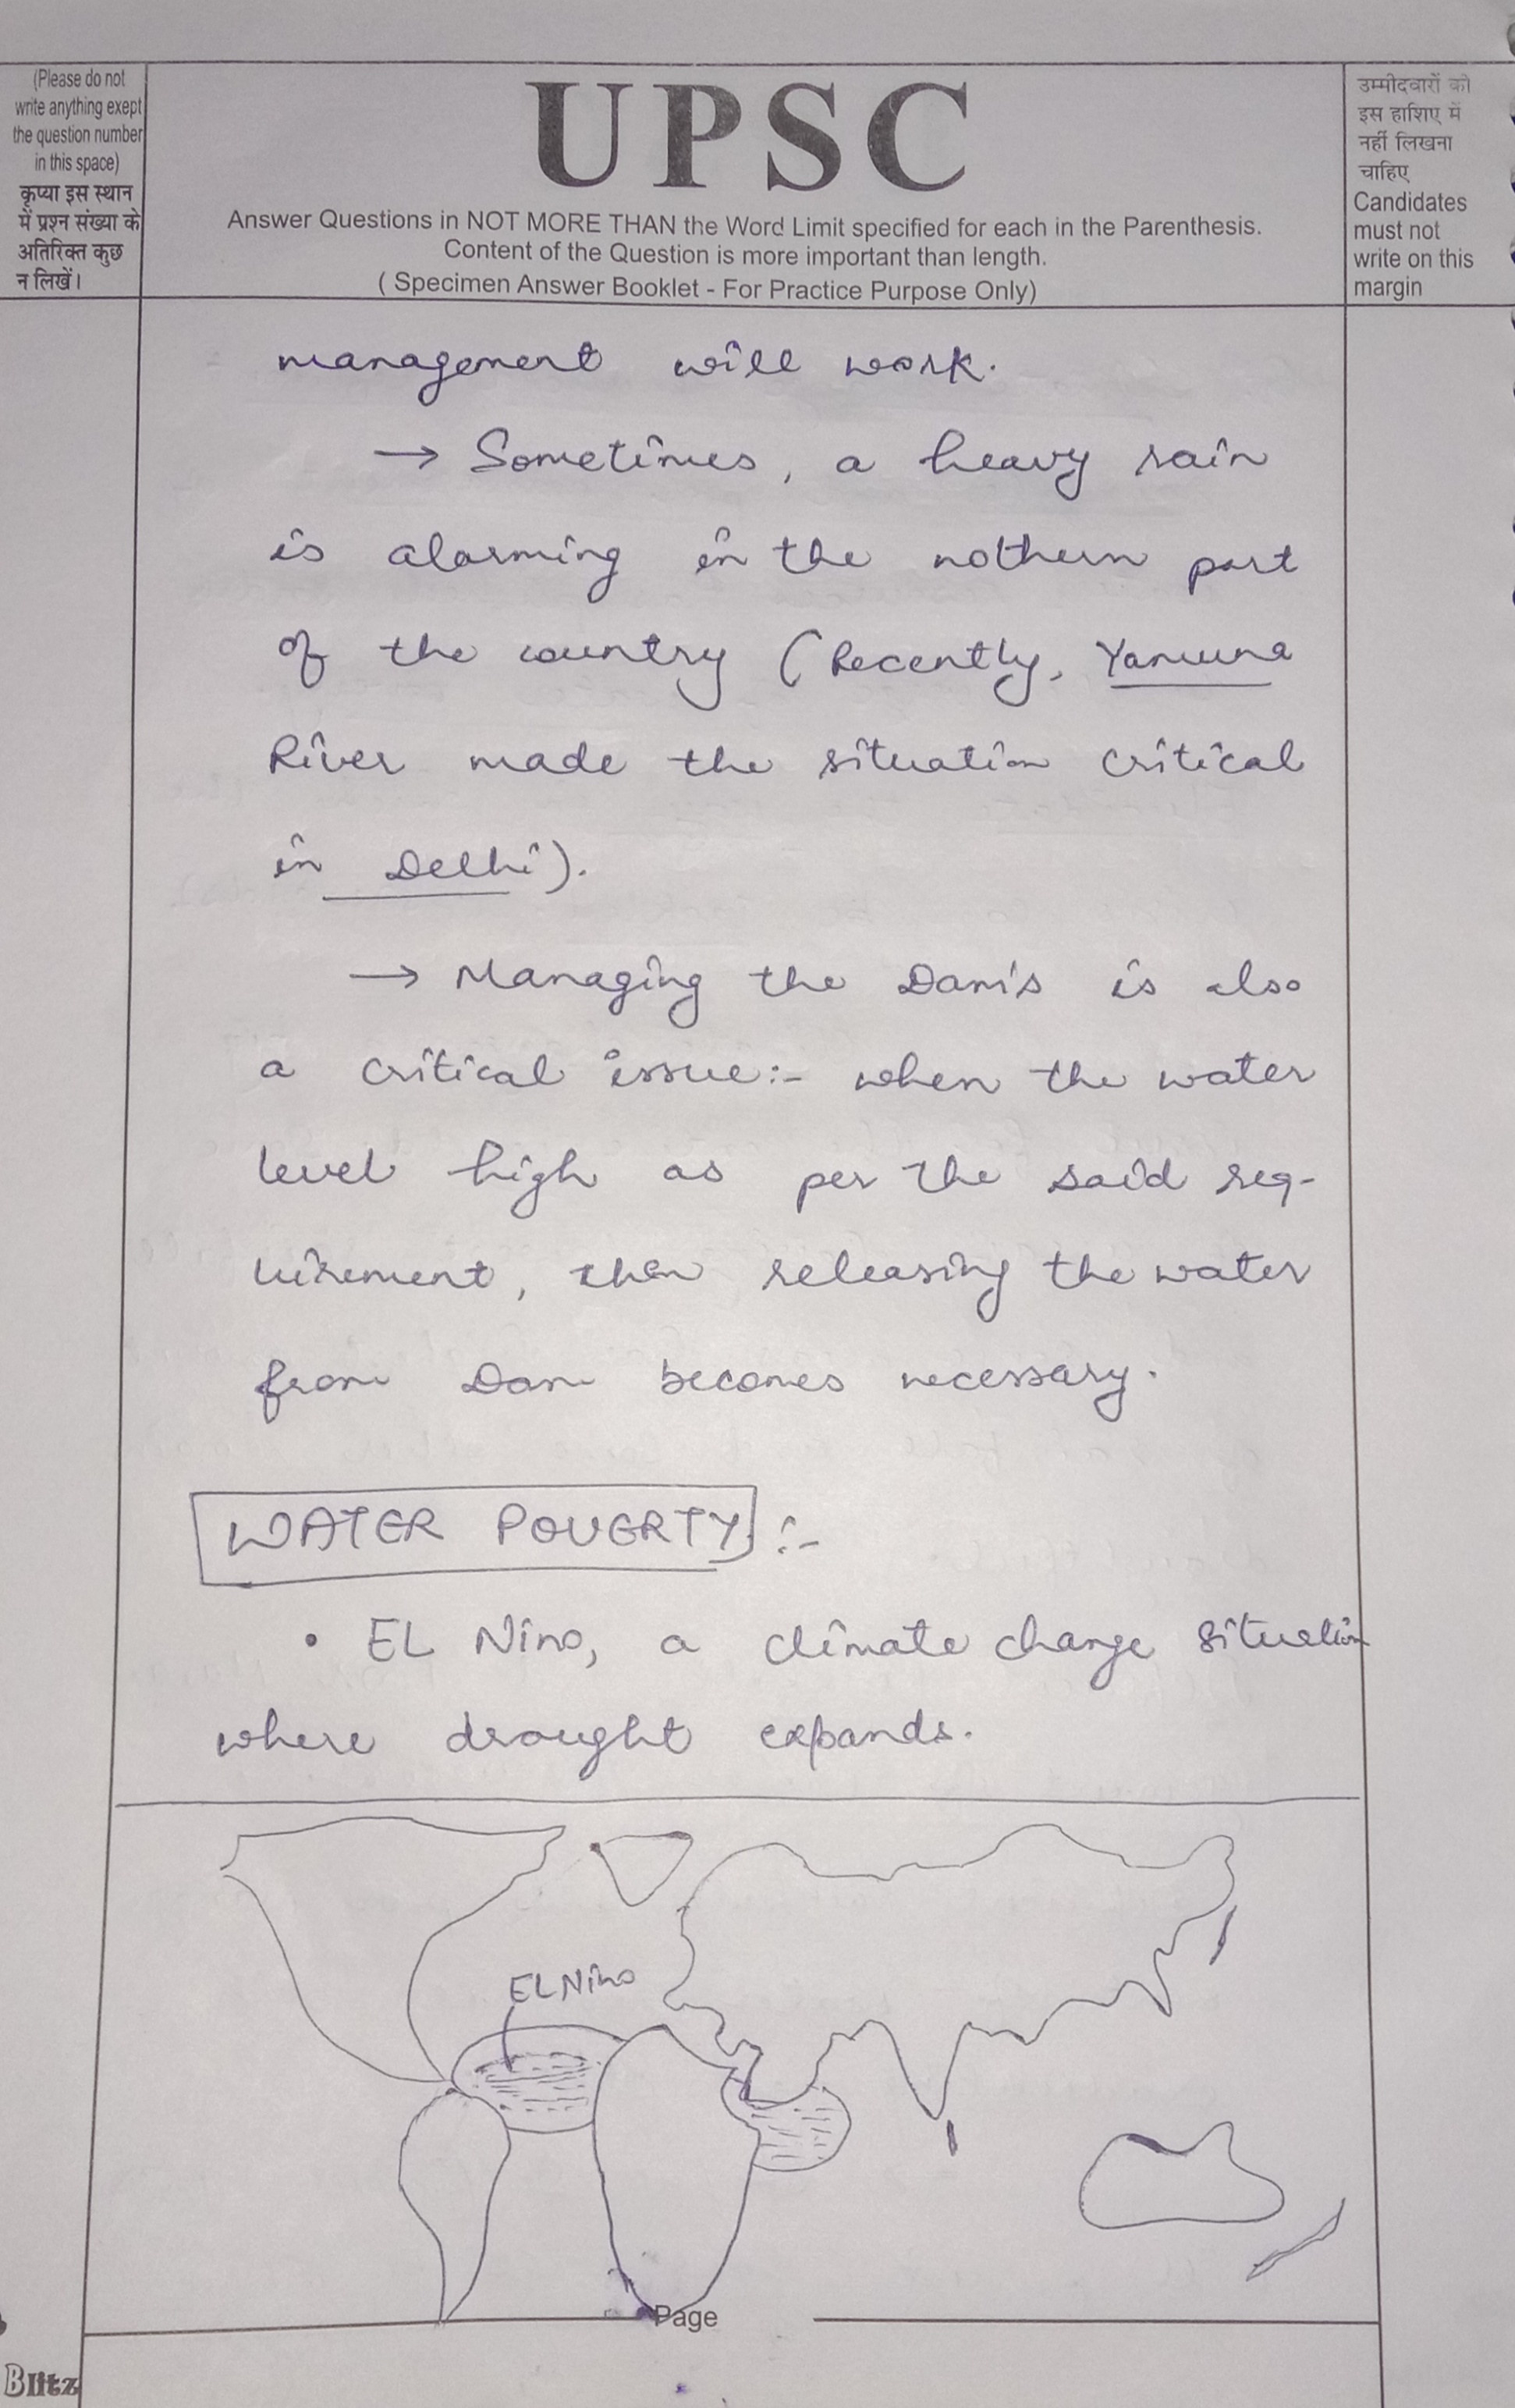 (Please do not
write anything exept
the question number
in this space)
कृप्या इस स्थान
में प्रश्न संख्या के
अतिरिक्त कुछ
न लिखें।
UPSC
Answer Questions in NOT MORE THAN the Word Limit specified for each in the Parenthesis.
Content of the Question is more important than length.
( Specimen Answer Booklet - For Practice Purpose Only)
उम्मीदवारों को
इस हाशिए में
नहीं लिखना
चाहिए
Candidates
must not
write on this
margin
management will work.
→ Sometimes, a heavy rain
is alarming in the nothern part
of the country (Recently, Yamuna
River made the situation critical
in Delhi).
→ Managing the Dam's is also
a critical issue:- when the water
level high as per the said req-
uirement, then releasing the water
from Dam becomes necessary.
WATER POVERTY :-
• EL Nino, a climate change situation
where drought expands.
EL Nino
Page
Blitz